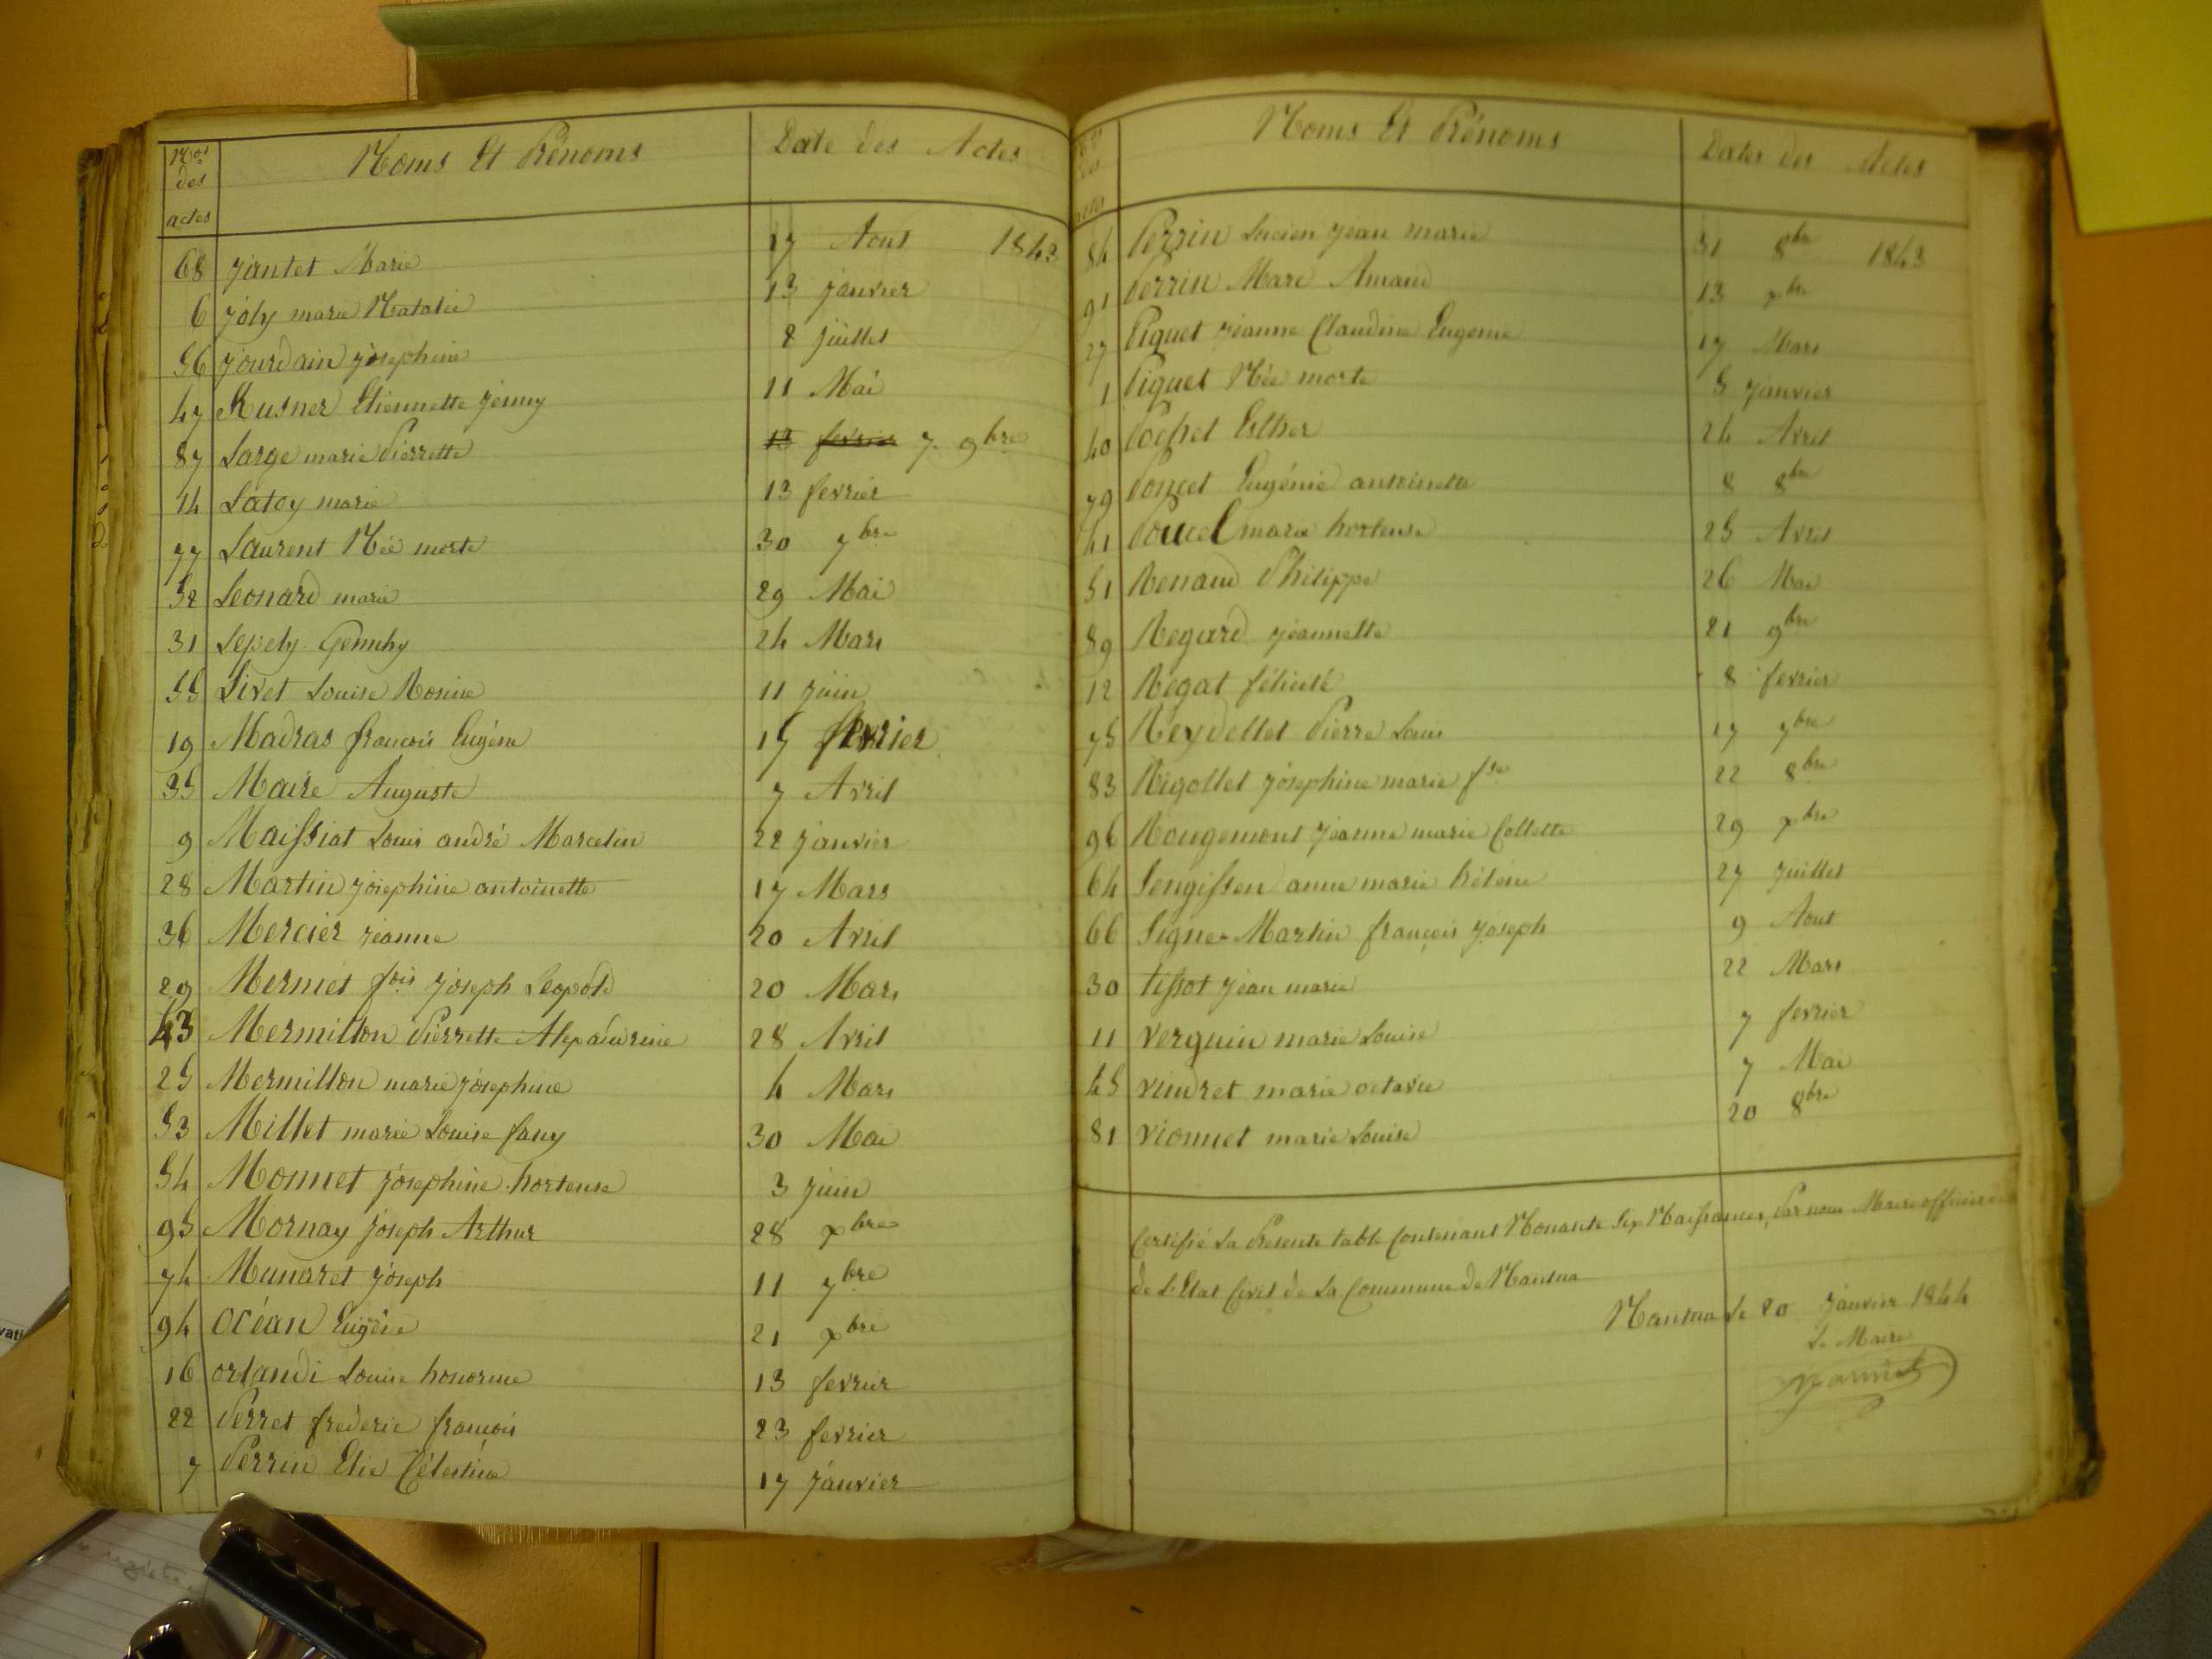 Nos des actes | Noms Et Prénoms | Date des Actes
68 Jantet Marie 17 Aout 1843
6 Joly marie Natalie 13 Janvier
56 Jourdain Joséphine 8 Juillet
47 Kusner Etiennette Jenny 11 Mai
87 Large marie Pierrette 13 fevrier 7 9bre
14 Latoy marie 13 fevrier
77 Laurent Née morte 30 7bre
52 Leonard marie 29 Mai
31 Lepely 24 Mars
55 Livet Louise Rosine 11 Juin
19 Madras francois Eugène 17 fevrier
35 Maire Auguste 7 Avril
9 Maissiat Louis andré Marcelin 22 Janvier
28 Martin Joséphine antoinette 17 Mars
36 Mercier Jeanne 20 Avril
29 Mermet fois Joseph Leopold 20 Mars
43 Mermillon Pierrette 28 Avril
25 Mermillon marie Joséphine 4 Mars
53 Millet marie Louise fany 30 Mai
54 Monnet Joséphine hortense 3 Juin
95 Mornay Joseph Arthur 28 xbre
74 Munaret Joseph 11 7bre
94 Océan Eugène 21 xbre
16 orlandi Louise honorine 13 fevrier
22 Perret frederic francois 23 fevrier
7 Perrin Elie Célestine 17 Janvier
Nos des actes | Noms Et Prénoms | Dates des Actes
84 Perrin Lucien Jean marie 31 8bre 1843
91 Perrin Marc Amand 13 xbre
27 Piquet Jeanne Claudine Eugenie 17 Mars
1 Piquet Née morte 5 Janvier
40 Pochet Esther 24 Avril
79 Poncet Eugénie antoinette 8 8bre
41 Poucel marie hortense 25 Avril
51 Renaud Philippe 26 Mai
89 Regard Jeannette 21 9bre
12 Regat félicité 8 fevrier
75 Reydellet Pierre Louis 17 7bre
83 Rigollet Joséphine marie fse 22 8bre
96 Rougemont Jeanne marie Collette 29 xbre
64 Sengissen anne marie hélène 27 Juillet
66 Signe Martin françois Joseph 9 Aout
30 tissot Jean marie 22 Mars
11 verguin marie Louise 7 fevrier
45 vindret marie octavie 7 Mai
81 vionnet marie Louise 20 8bre
Certifié La Présente table Contenant Nonante Six Naissances, Par nous Maire officier
de L'Etat Civil de La Commune de Nantua
Nantua Le 20 Janvier 1844
Le Maire